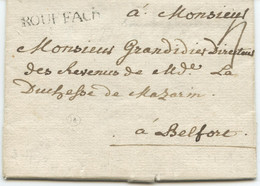 à Monsieur
ROUFFACK
Monsieur Grandidier Directeur
des Revenus de Mde. La
Duchesse de Mazarin
à Belfort.